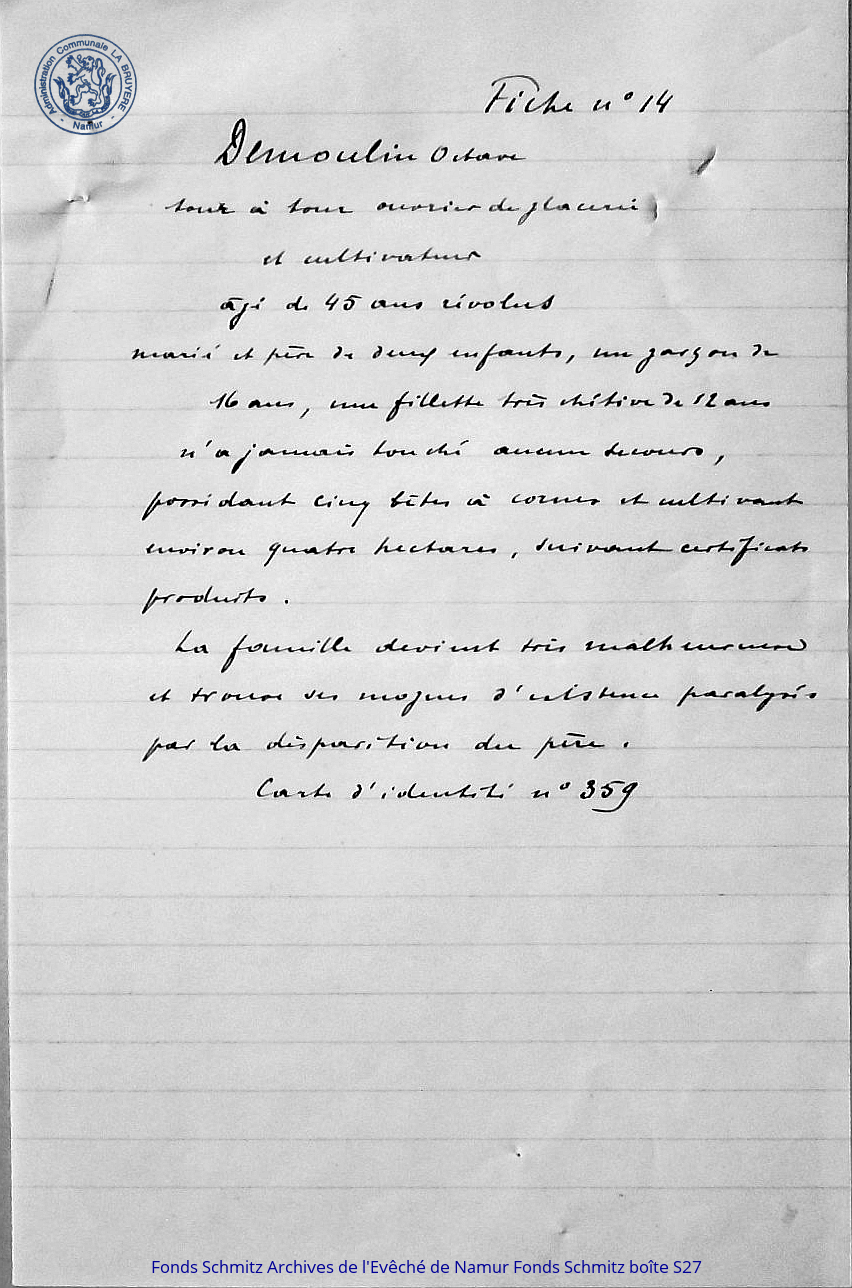 Administration Communale LA BRUYERE
- Namur -
Fiche n° 14
Demoulin Octave
tour à tour ouvrier de glacerie
et cultivateur
âgé de 45 ans révolus
marié et père de deux enfants, un garçon de
16 ans, une fillette très chétive de 12 ans
n'a jamais touché aucun secours,
possédant cinq bêtes à cornes et cultivant
environ quatre hectares, suivant certificats
produits.
La famille devient très malheureuse
et trouve ses moyens d'existence paralysés
par la disparition du père.
Carte d'identité n° 359
Fonds Schmitz Archives de l'Evêché de Namur Fonds Schmitz boîte S27